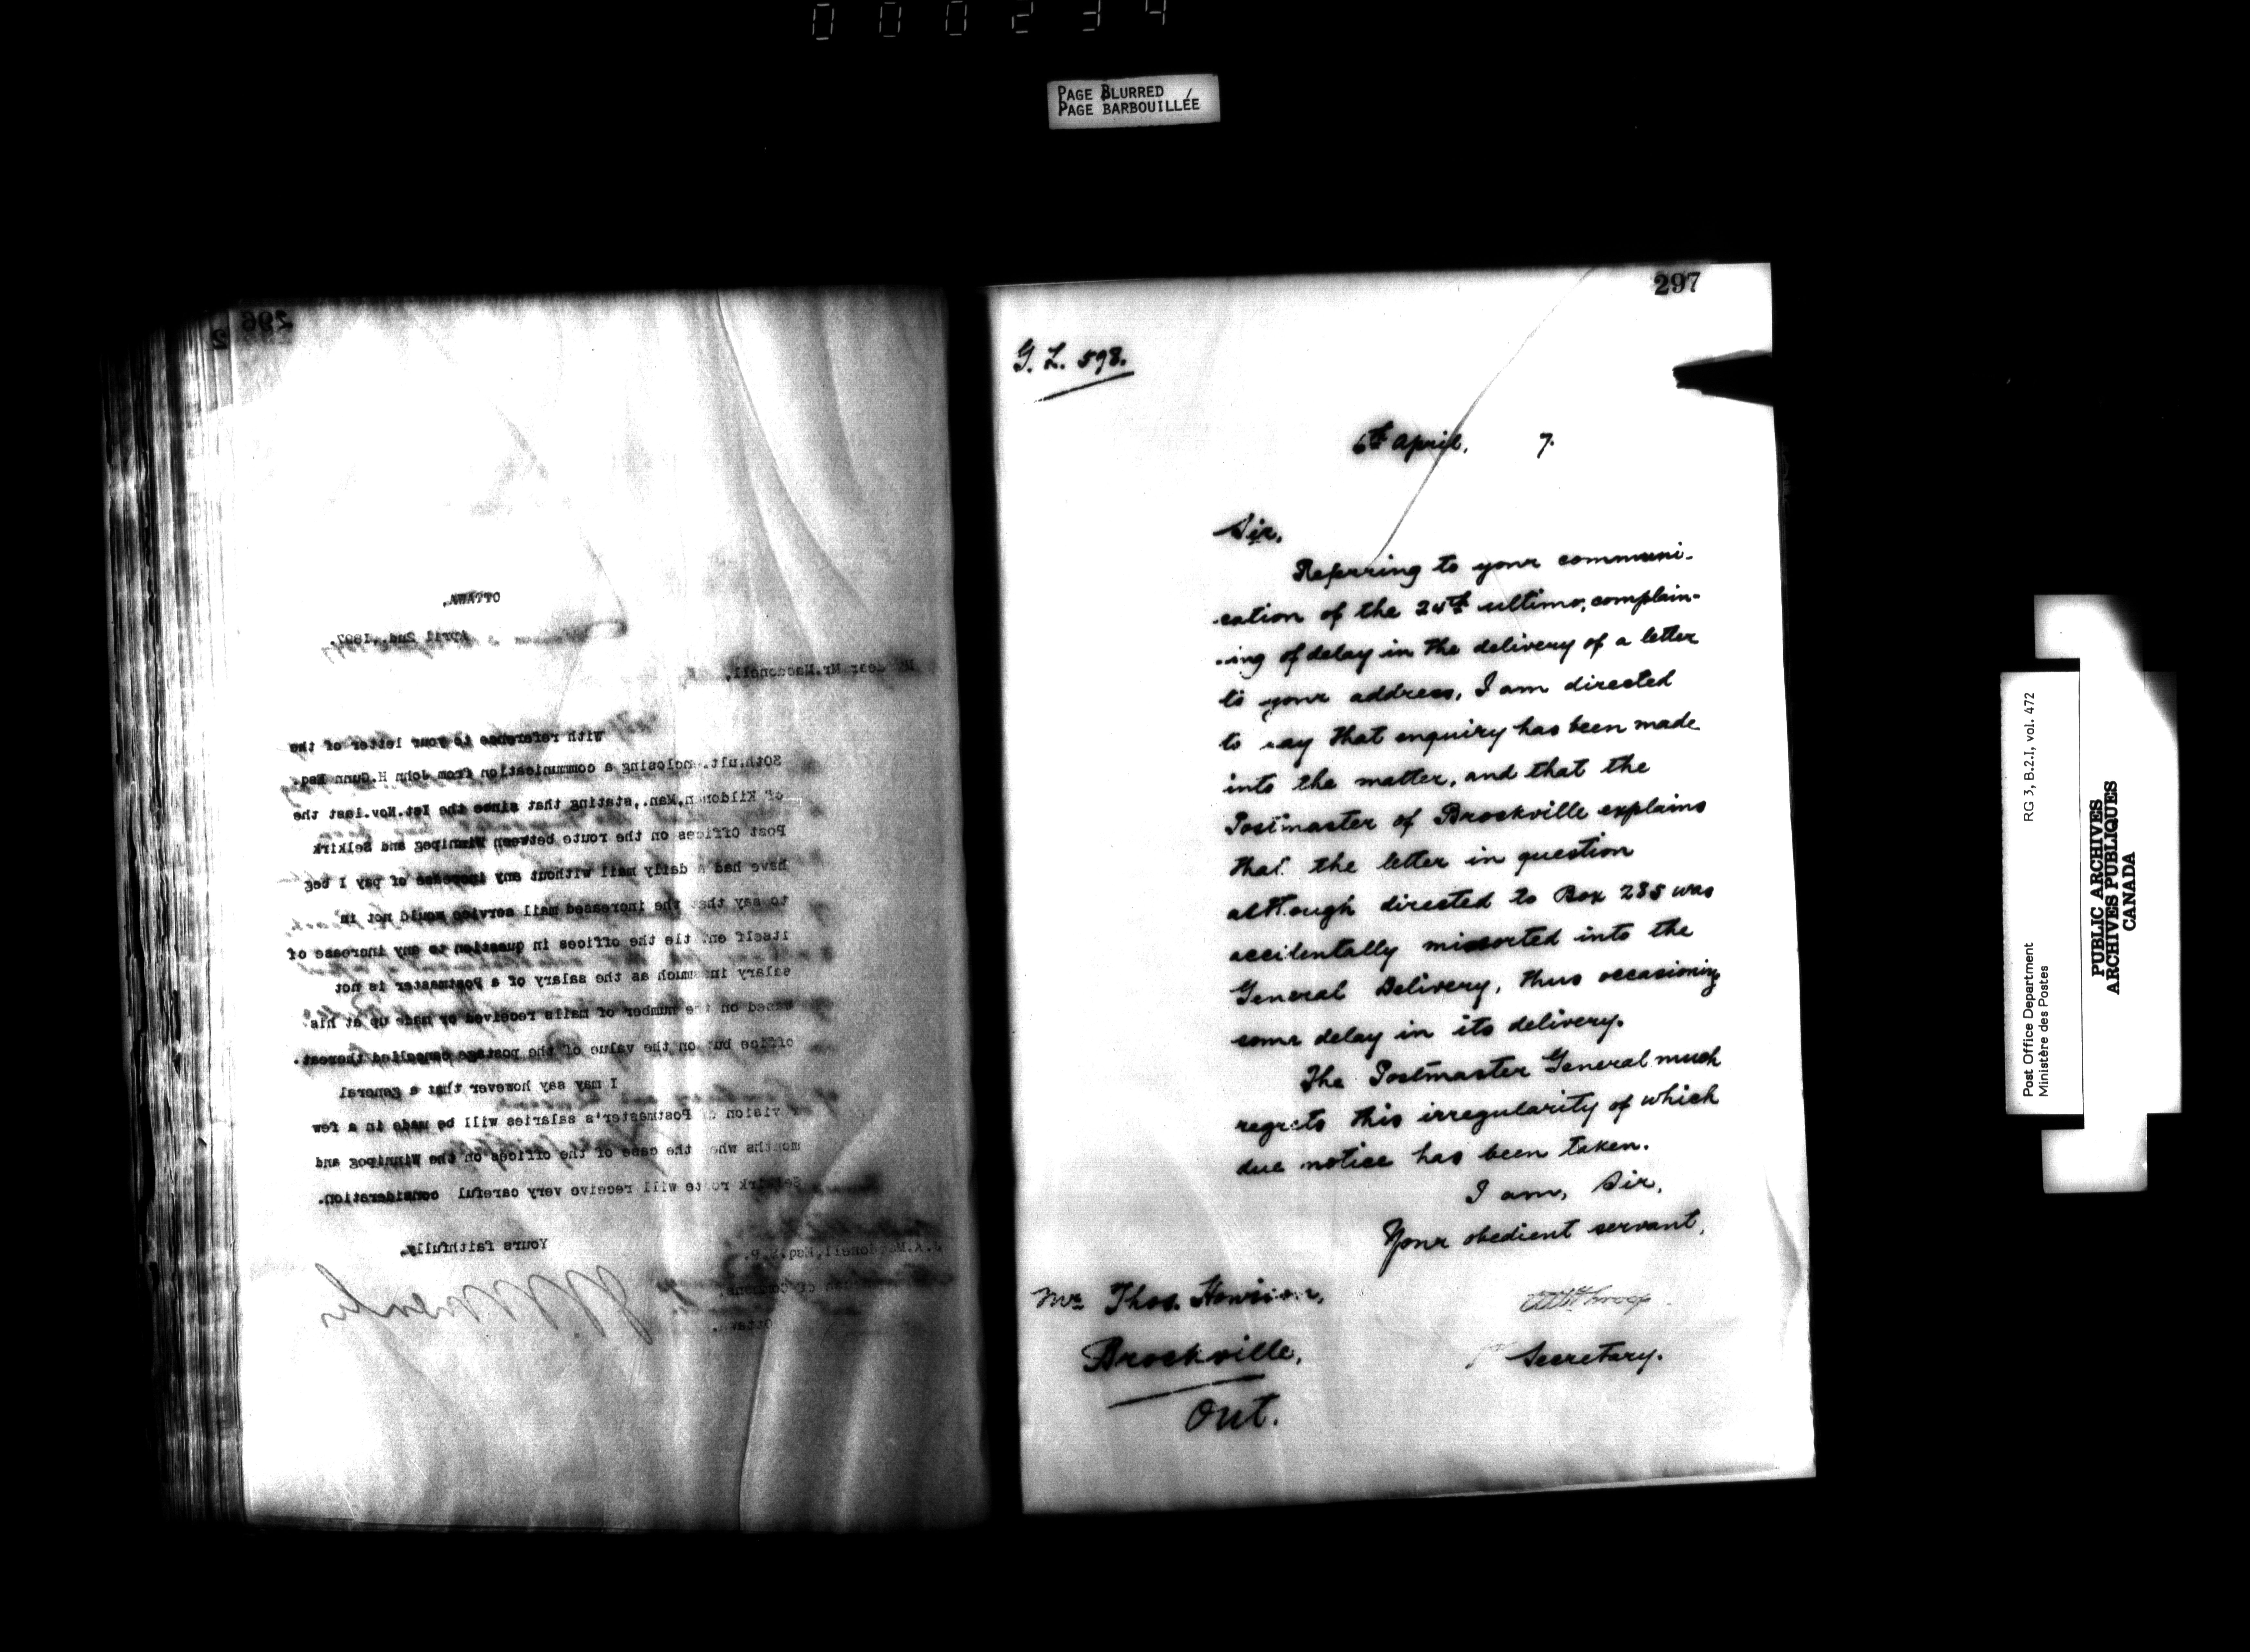 000234
PAGE BLURRED
PAGE BARBOUILLÉE
296
2
OTTAWA,
April 2nd., 1897.
My dear Mr. Macdonell,
With reference to your letter of the
30th. ult. enclosing a communication from John H. Gunn Esq.
of Kildonan, Man., stating that since the 1st. Nov. last the
Post Offices on the route between Winnipeg and Selkirk
have had a daily mail without any increase of pay I beg
to say that the increased mail service would not in
itself entitle the offices in question to any increase of
salary inasmuch as the salary of a Postmaster is not
based on the number of mails received or made up at his
office but on the value of the postage cancelled thereat.
I may say however that a general
revision of Postmaster's salaries will be made in a few
months when the case of the offices on the Winnipeg and
Selkirk route will receive very careful consideration.
Yours faithfully,
J.A. Macdonell, Esq. M.P.
House of Commons,
Ottawa.
297
G. L. 598.
6th April, 7.
Sir,
Referring to your communi-
cation of the 24th ultimo, complain-
-ing of delay in the delivery of a letter
to your address, I am directed
to say that enquiry has been made
into the matter, and that the
Postmaster of Brockville explains
that the letter in question
although directed to Box 235 was
accidentally missorted into the
General Delivery, thus occasioning
some delay in its delivery.
The Postmaster General much
regrets this irregularity of which
due notice has been taken.
I am, Sir,
Your obedient servant,
Mr Thos. Howison,
Brockville,
Ont.
Secretary.
Post Office Department RG 3, B.2.I, vol. 472
Ministère des Postes
PUBLIC ARCHIVES
ARCHIVES PUBLIQUES
CANADA